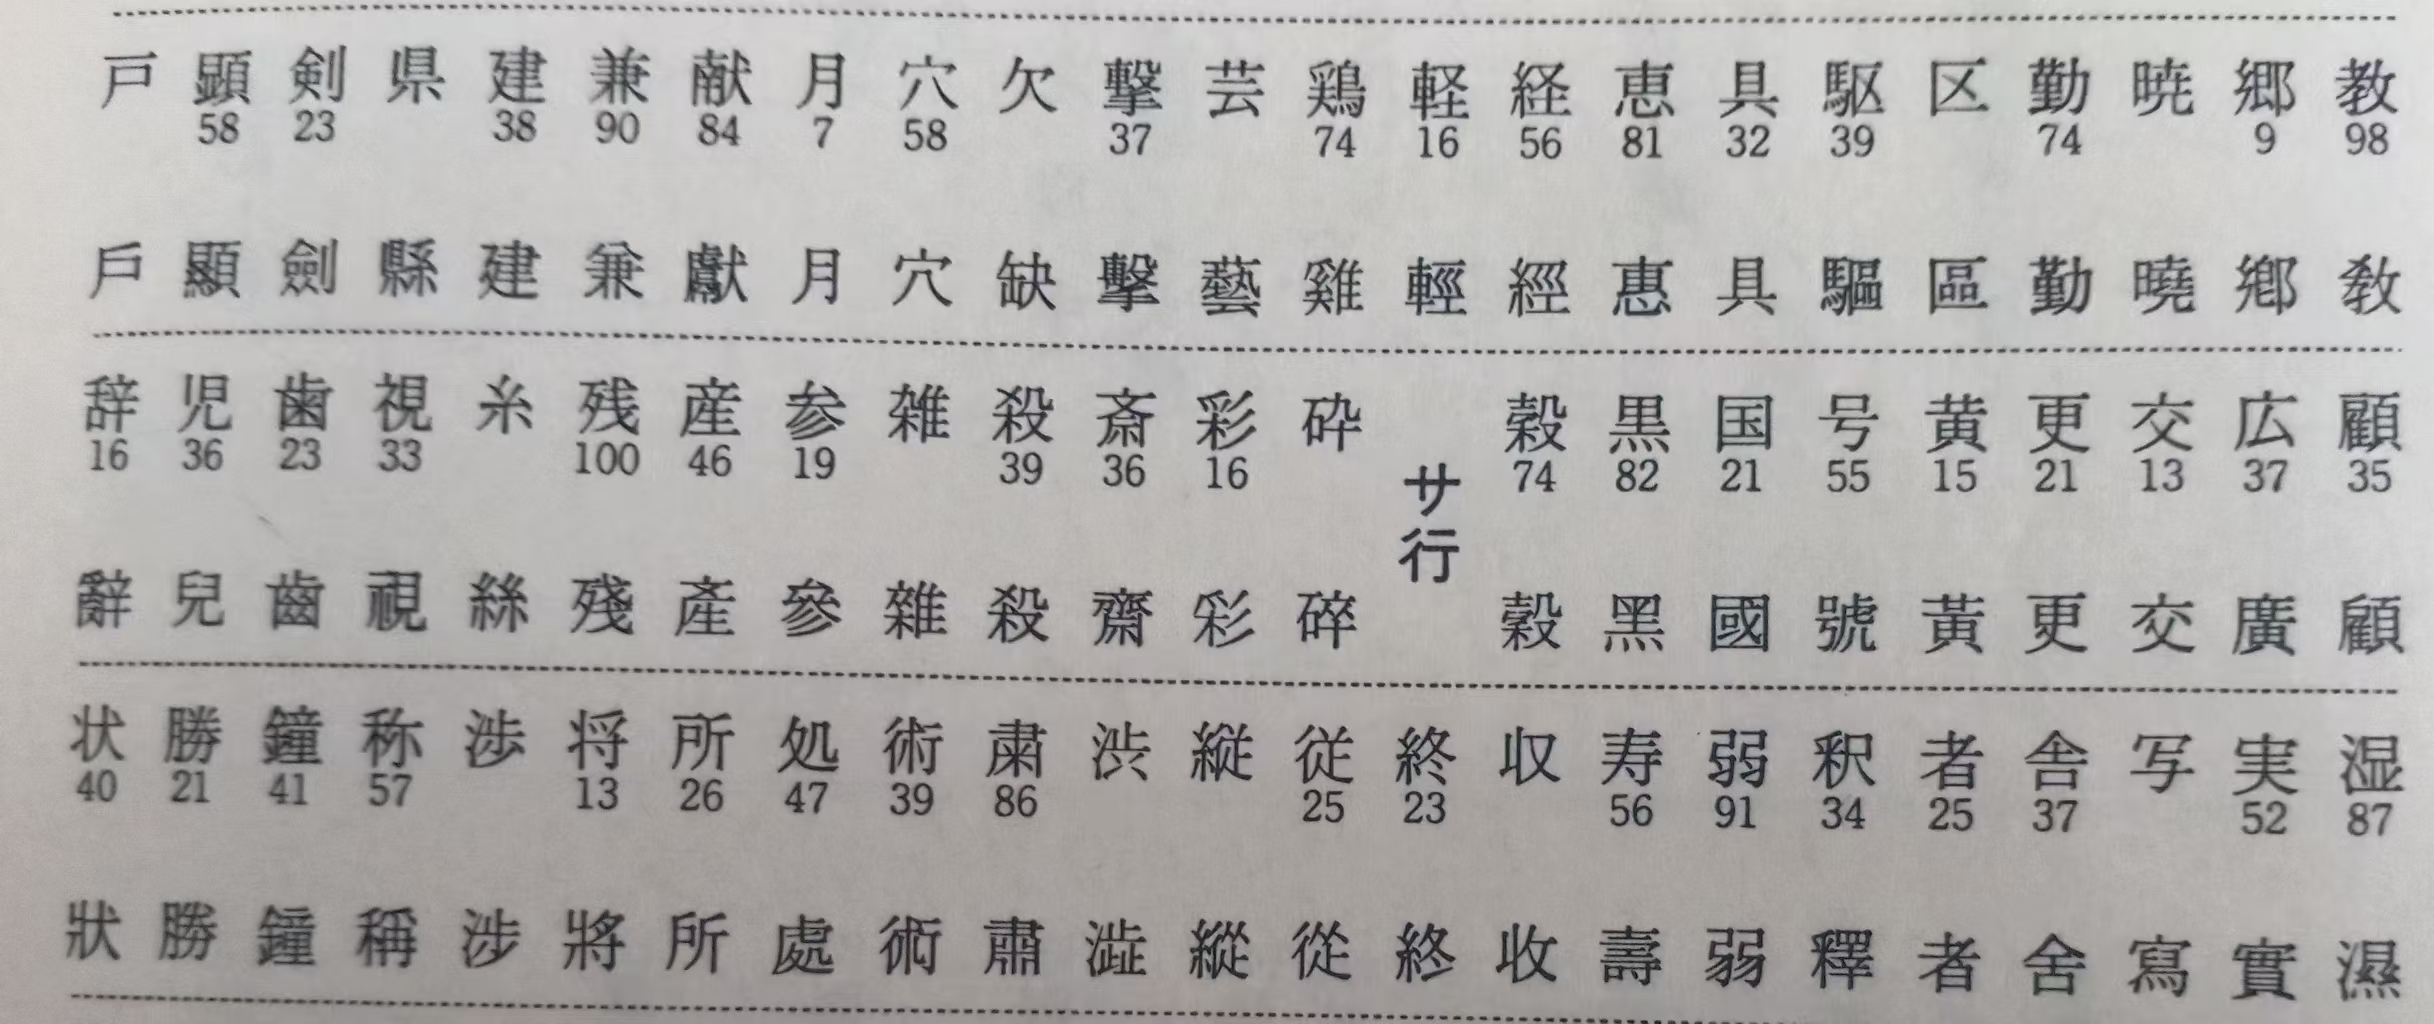 教 98 敎
郷 9 鄕
暁 曉
勤 74 勤
区 區
駆 39 驅
具 32 具
恵 81 惠
経 56 經
軽 16 輕
鶏 74 雞
芸 藝
撃 37 擊
欠 缺
穴 58 穴
月 7 月
献 84 獻
兼 90 兼
建 38 建
県 縣
剣 23 劍
顕 58 顯
戸 戶
顧 35 顧
広 37 廣
交 13 交
更 21 更
黄 15 黃
号 55 號
国 21 國
黒 82 黑
穀 74 穀
サ行
砕 碎
彩 16 彩
斎 36 齋
殺 39 殺
雑 雜
参 19 參
産 46 產
残 100 殘
糸 絲
視 33 視
歯 23 齒
児 36 兒
辞 16 辭
湿 87 濕
実 52 實
写 寫
舎 37 舍
者 25 者
釈 34 釋
弱 91 弱
寿 56 壽
収 收
終 23 終
従 25 從
縦 縱
渋 澁
粛 86 肅
術 39 術
処 47 處
所 26 所
将 13 將
渉 涉
称 57 稱
鐘 41 鐘
勝 21 勝
状 40 狀